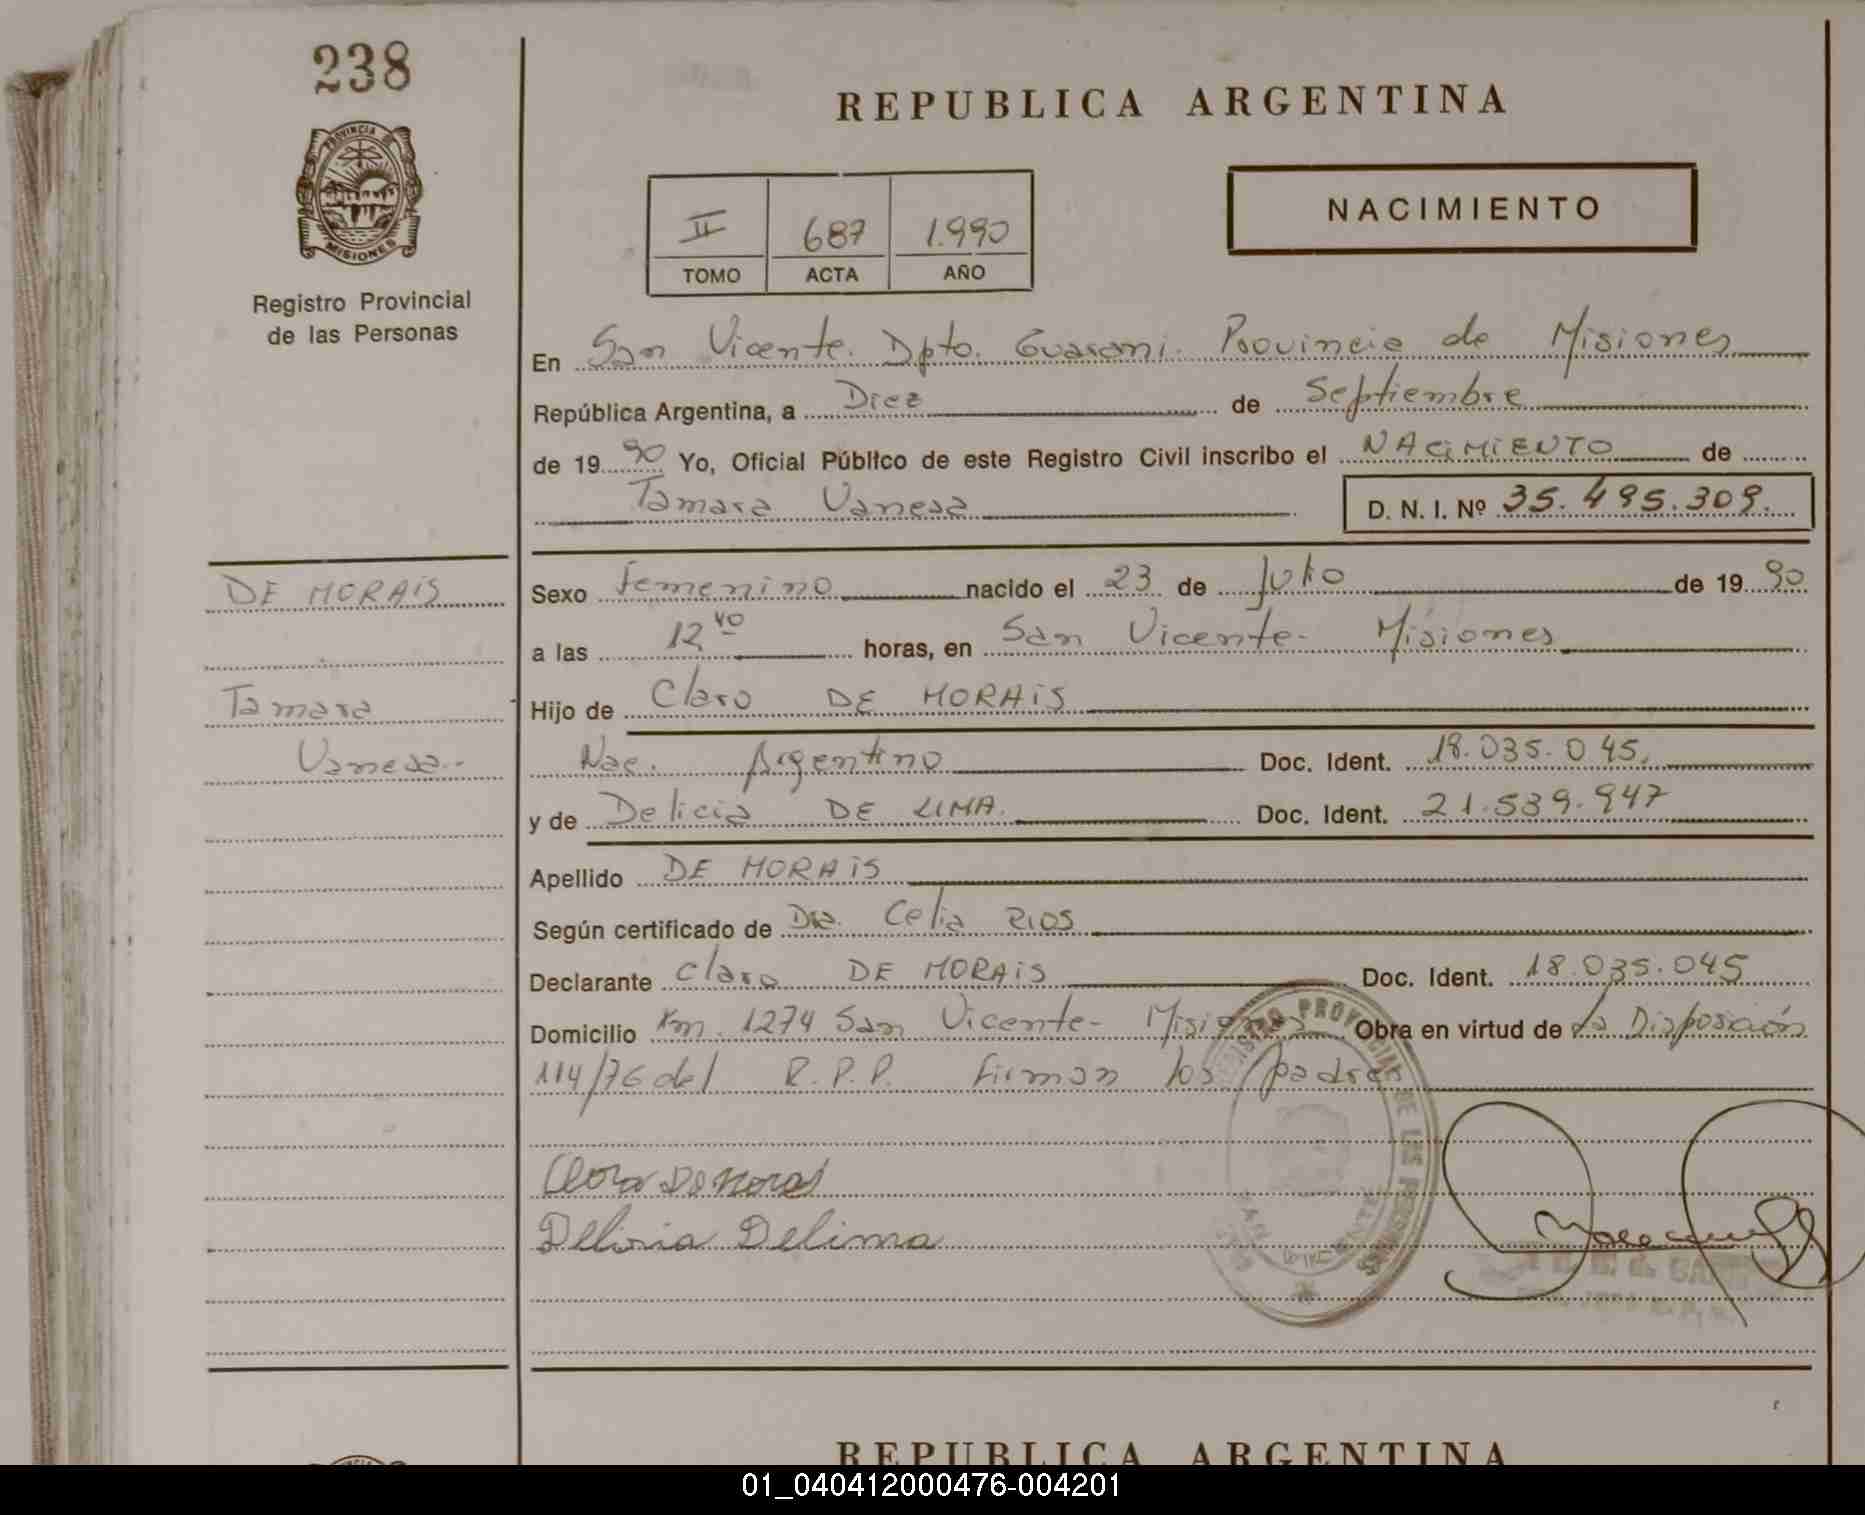 238
PROVINCIA DE
MISIONES
Registro Provincial
de las Personas
REPUBLICA ARGENTINA
II 687 1.990
TOMO ACTA AÑO
NACIMIENTO
En San Vicente. Dpto. Guarani. Provincia de Misiones
República Argentina, a Diez de Septiembre
de 19 90 Yo, Oficial Público de este Registro Civil inscribo el NACIMIENTO de
Tamara Vanesa D. N. I. Nº 35.495.309.
DE MORAIS
Tamara
Vanesa.-
Sexo Femenino nacido el 23 de Julio de 19 90
a las 12 40 horas, en San Vicente- Misiones
Hijo de Claro DE MORAIS
Nac. Argentino Doc. Ident. 18.035.045.
y de Delicia DE LIMA. Doc. Ident. 21.539.947
Apellido DE MORAIS
Según certificado de Dra. Celia RIOS
Declarante Claro DE MORAIS Doc. Ident. 18.035.045
Domicilio Km. 1274 San Vicente- Misiones Obra en virtud de La Disposición
114/76 del R.P.P. Firman los padres
REGISTRO PROVINCIAL DE LAS PERSONAS
SAN VICENTE
Delima
REPUBLICA ARGENTINA
01_040412000476-004201